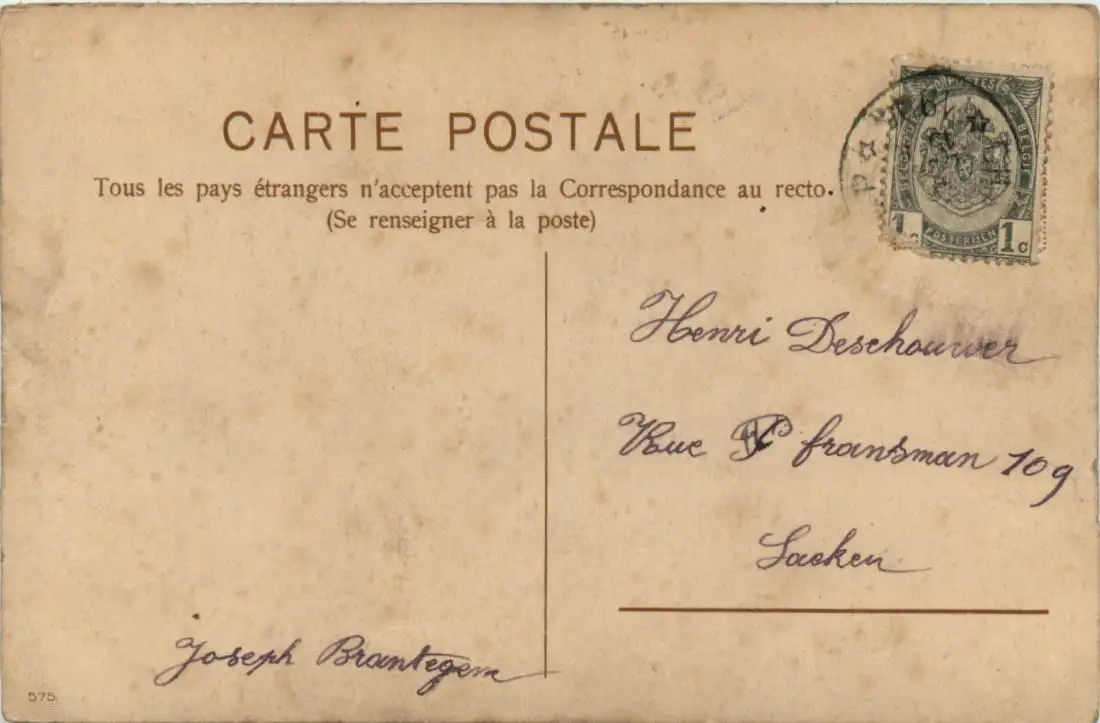 CARTE POSTALE
Tous les pays étrangers n'acceptent pas la Correspondance au recto.
(Se renseigner à la poste)
POSTERIJEN
1 c
Henri Deschouwer
Rue fransman 109
Laeken
Joseph Brantegem
575